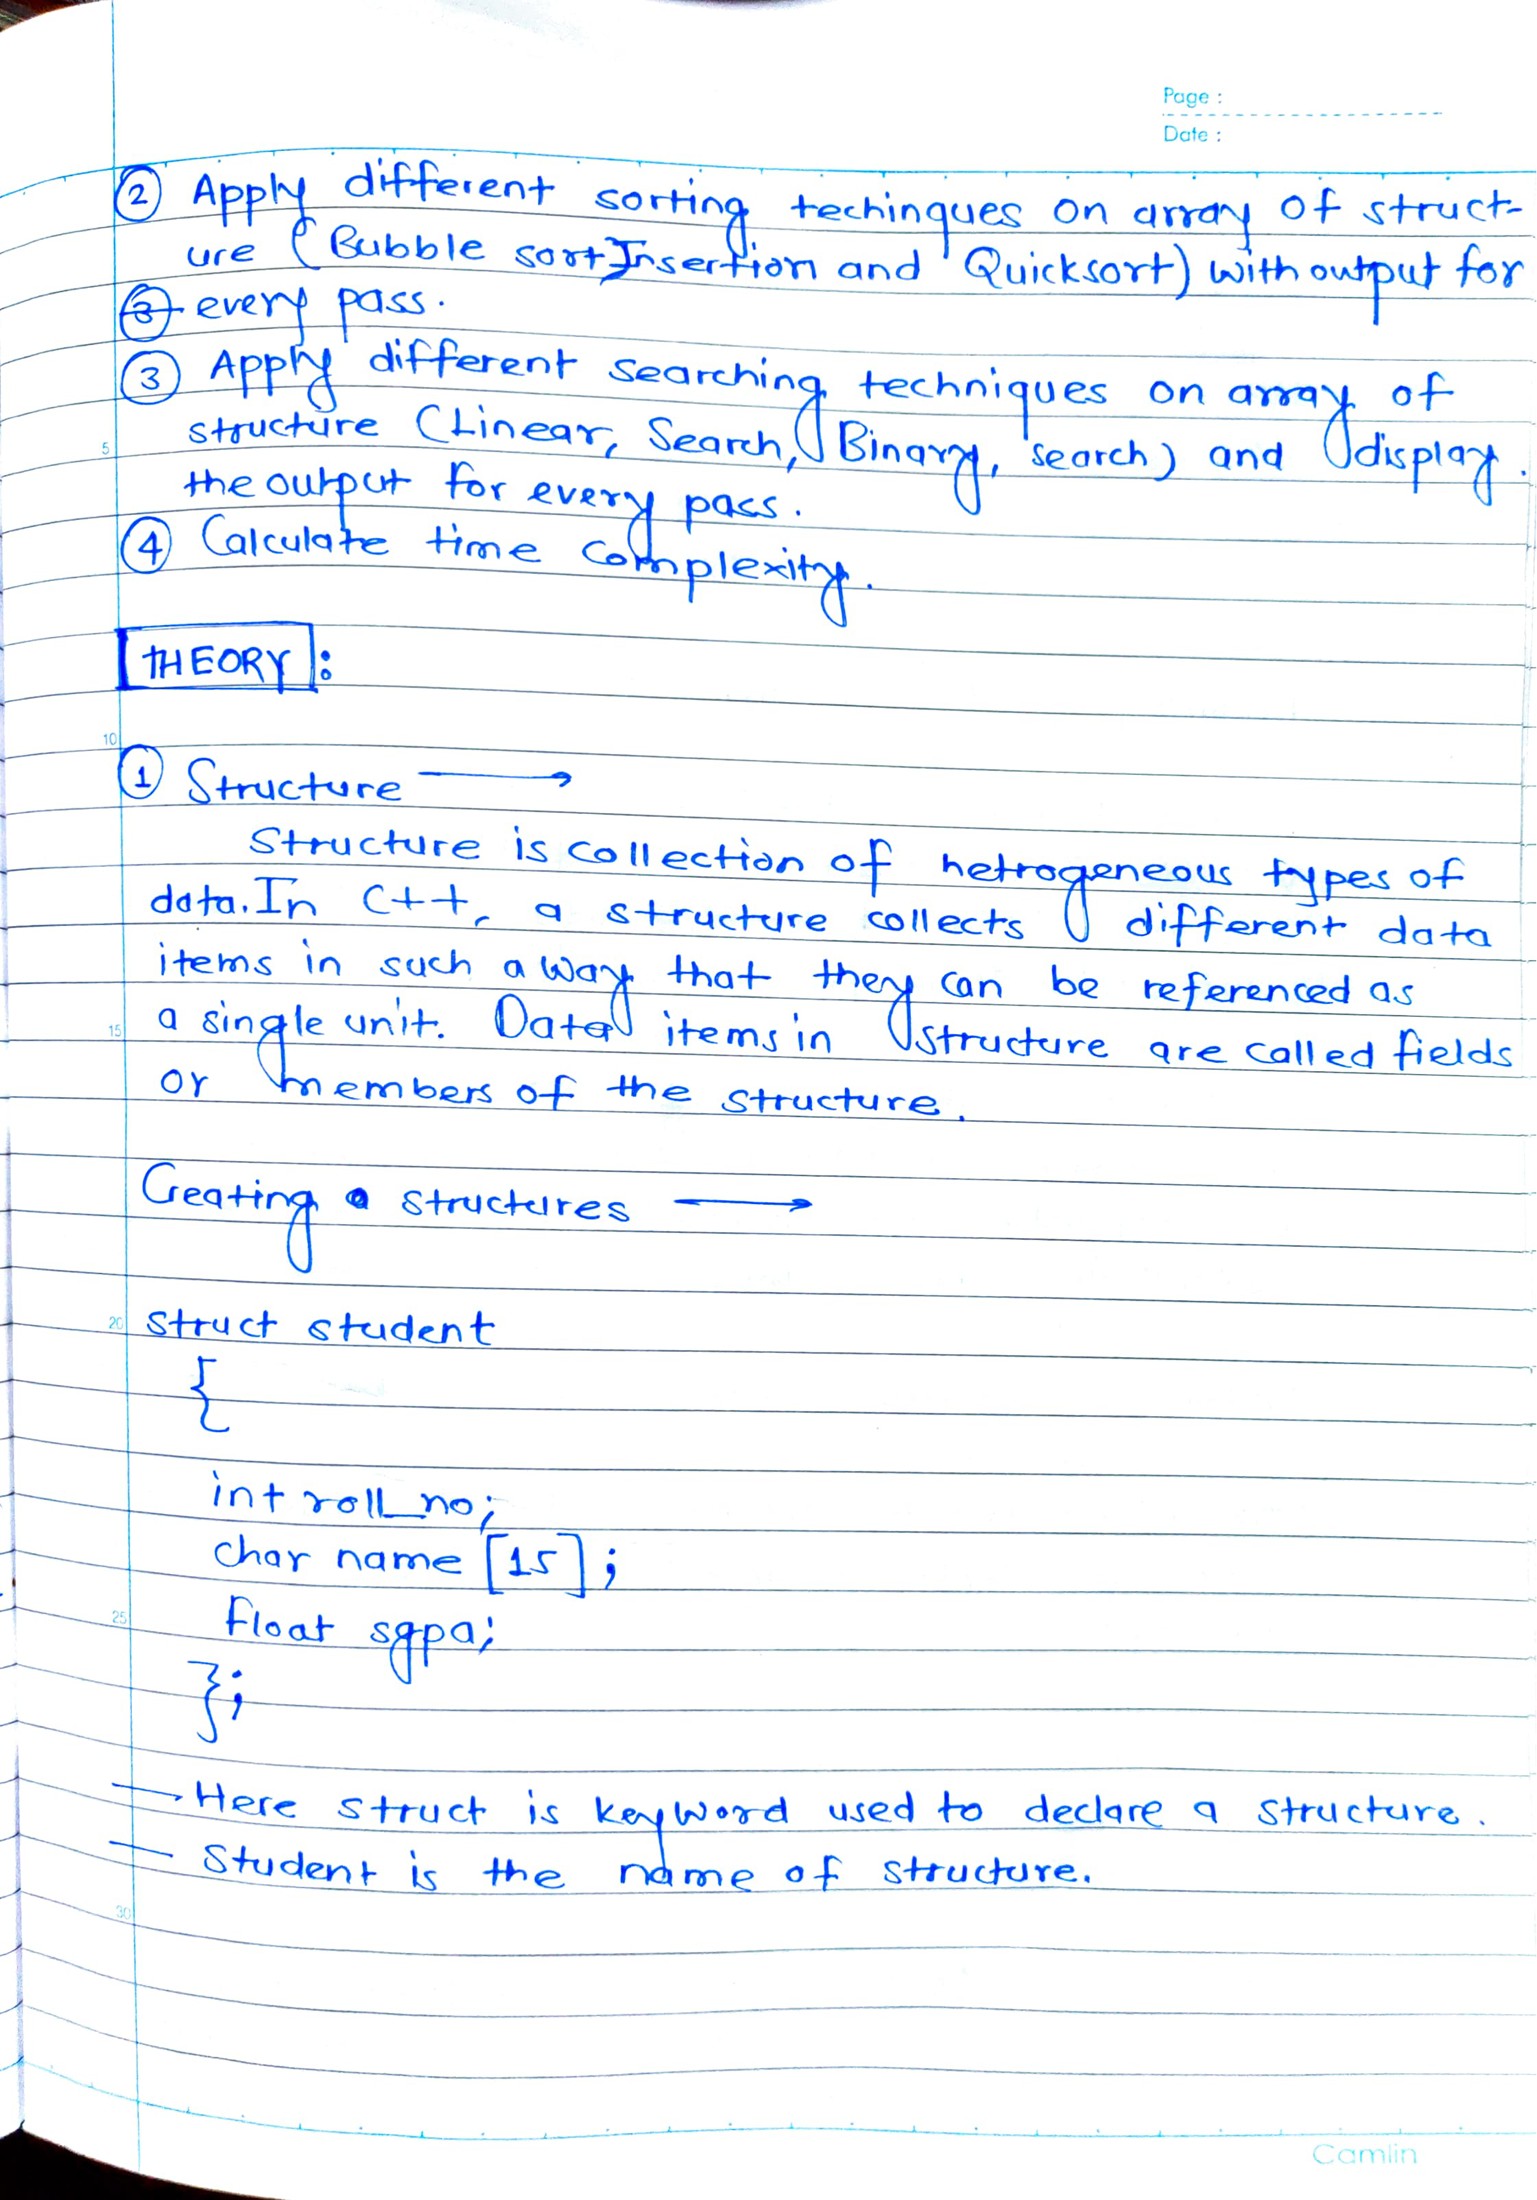 Page :
Date :
② Apply different sorting techinques on array of struct-
ure (Bubble sort Insertion and Quicksort) with output for
③ every pass.
③ Apply different searching techniques on array of
structure (Linear, Search, Binary, search) and display.
the output for every pass.
④ Calculate time complexity.
THEORY :
① Structure →
Structure is collection of hetrogeneous types of
data. In C++, a structure collects different data
items in such a way that they can be referenced as
a single unit. Data items in structure are called fields
or members of the structure.
Creating a structures →
struct student
{
int roll_no;
char name [15];
float sgpa;
};
— Here struct is keyword used to declare a structure.
— Student is the name of structure.
5
10
15
20
25
30
Camlin